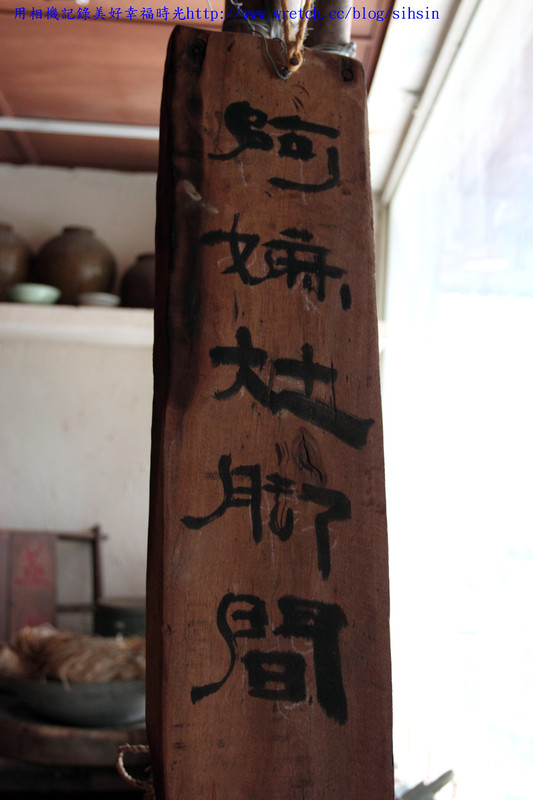 用相機記錄美好幸福時光http://www.wretch.cc/blog/sihsin
阿嫲灶脚間